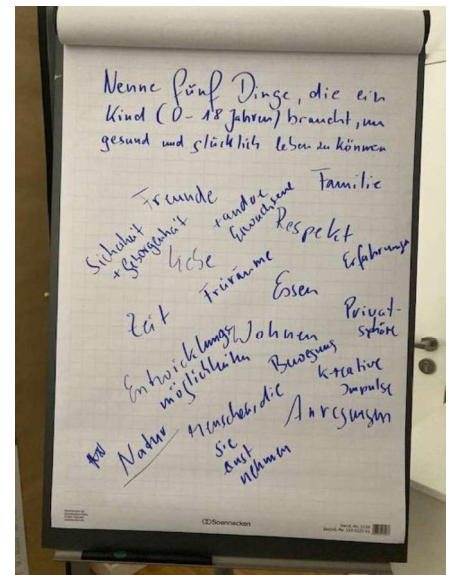 Nenne fünf Dinge, die ein
Kind (0-18 Jahren) braucht, um
gesund und glücklich leben zu können
Familie
Freunde
+ andre
Erwachsene
Sicherheit
+ Geborgenheit
Respekt
Liebe
Erfahrungen
Freiräume
Essen
Zeit
Privat-
sphäre
Entwicklungs
möglichkeiten
Wohnen
Bewegung
kreative
Impulse
Anregungen
Natur
Menschen, die
sie
ernst
nehmen
Soennecken